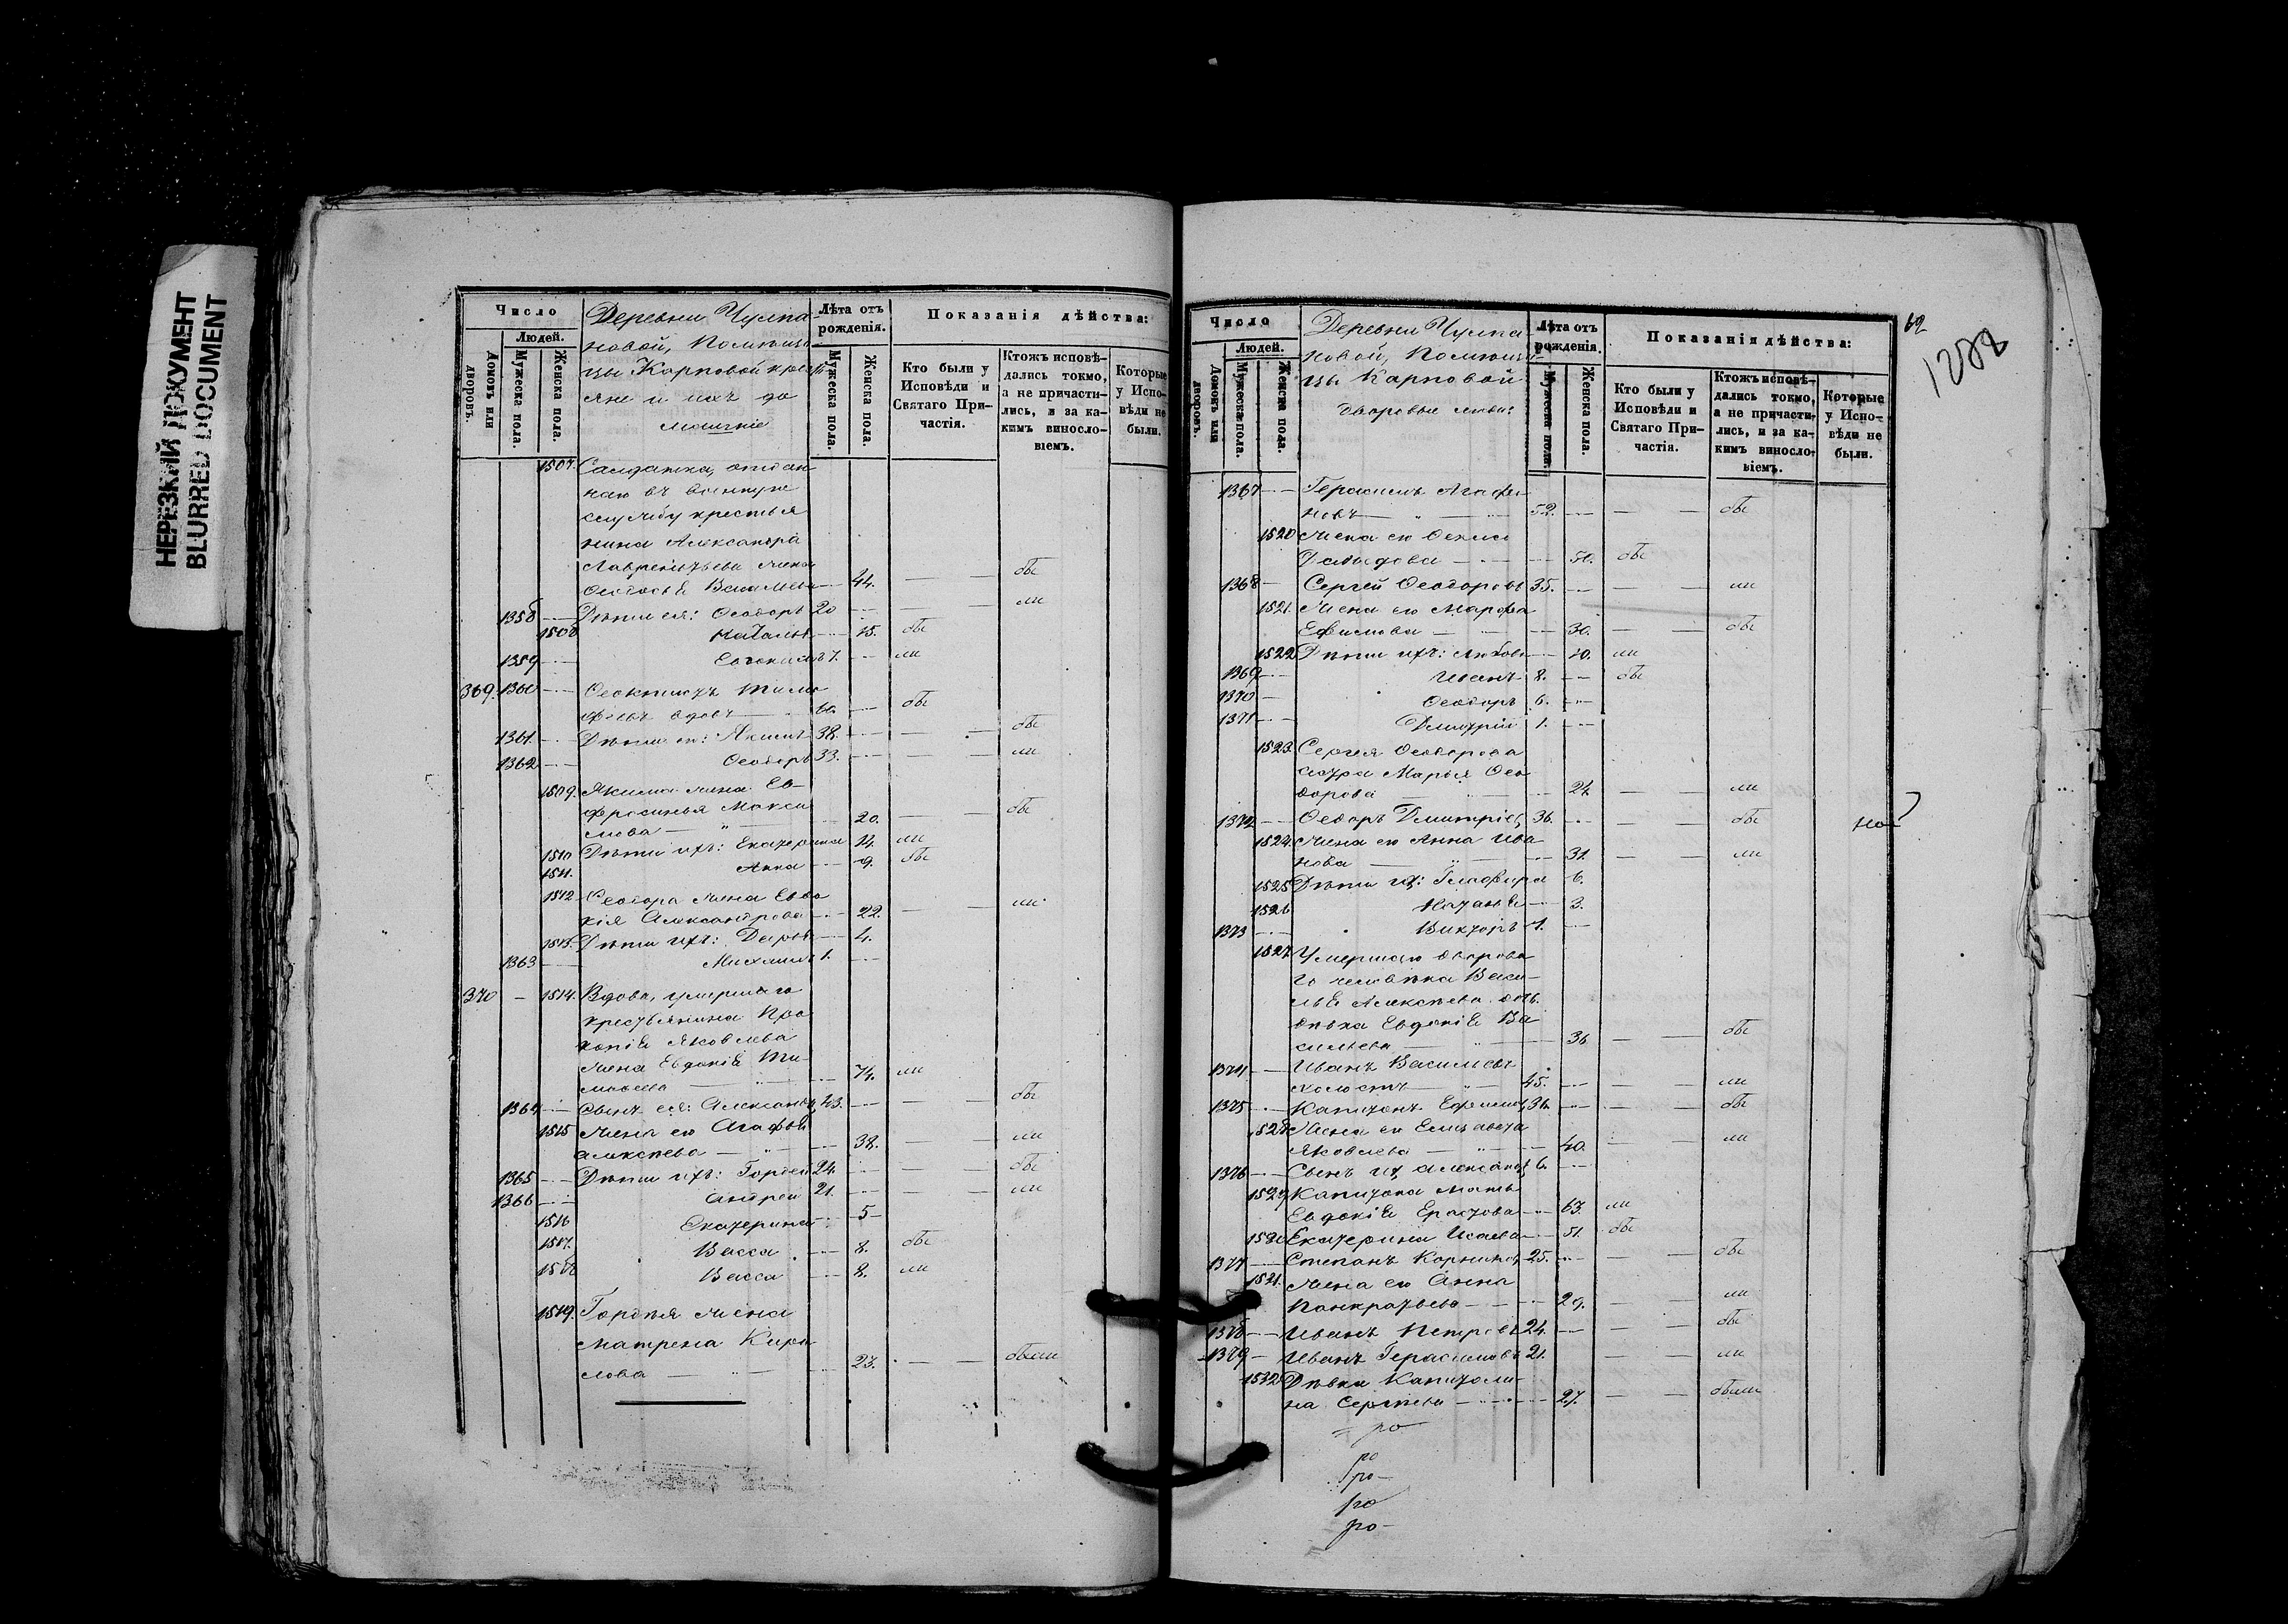 НЕРЕЗКИЙ ДОКУМЕНТ
BLURRED DOCUMENT
Число
Людей.
Домовъ или дворовъ.
Мужеска пола.
Женска пола.
Деревни Чулпа-
новой, Помѣщи
цы Карповой крестья
яне и ихъ до
машніе
Лѣта отъ рожденія.
Мужеска пола.
Женска пола.
Показанія дѣйства:
Кто были у Исповѣди и Святаго Причастія.
Ктожъ исповѣ-
дались токмо,
а не причасти-
лись, и за ка-
кимъ винносло-
віемъ.
Которые
у Испо-
вѣди не
были.
1507. Салдатка, отдан
наго въ военную
службу крестья
нина Александра
Лаврентьева жена
Ѳеодосья Васильева 44. бы
1358 Дѣти ея: Ѳеодоръ 20 ли
1508 Наталья 15. бы
1359 Евдокимъ 7. ли
369. 1360 Ѳеоктистъ Тимо
фѣевъ вдовъ 60. бы
1361. Дѣти его: Якимъ 38. бы
1362 Ѳеодоръ 33. ли
1509. Якима жена Ев-
фросинья Макси
мова 20. бы
1510 Дѣти ихъ: Екатерина 11. ли
1511. Анна 9. бы
1512 Ѳеодора жена Евдо
кія Александрова 22. ли
1513. Дѣти ихъ: Дарья 4.
1363 Михаилъ 1.
370 1514. Вдова, умершаго
крестьянина Про
копія Яковлева
жена Евдокія Ти-
моѳеева 74. ли
1364 Сынъ ея: Александръ 43. бы
1515 Жена его Агафья
Алексѣева 38. ли
1365 Дѣти ихъ: Гордей 24. бы
1366 Андрей 21. ли
1516 Екатерина 5
1517. Васса 8. бы
1518 Васса 8. ли
1519. Гордѣя жена
Матрена Кири
лова 23. были
Число
Людей.
Домовъ или дворовъ.
Мужеска пола.
Женска пола.
Деревни Чулпа-
новой, Помѣщи-
цы Карповой
дворовые люди:
Лѣта отъ рожденія.
Мужеска пола.
Женска пола.
Показанія дѣйства:
Кто были у Исповѣди и Святаго Причастія.
Ктожъ исповѣ-
дались токмо,
а не причасти-
лись, и за ка-
кимъ винносло-
віемъ.
Которые
у Испо-
вѣди не
были.
1367 Герасимъ Агафо
новъ 52. бы
1520 Жена его
Давыдова 50. бы
1368 Сергей Ѳеодоровъ 35. ли
1521. Жена его Марфа
Ефимова 30. бы
1522 Дѣти ихъ: Любовь 10. ли
1369 Иванъ 8. бы
1370 Ѳеодоръ 6.
1371 Дмитрій 1.
1523. Сергея Ѳеодорова
сестра Марья Ѳео
дорова 24 ли
1372 Ѳеодоръ Дмитріевъ 36. бы
1524. Жена его Анна Ива
нова 31. ли
1525. Дѣти ихъ: Глафира 6.
1526 Наталья 3.
1373 Викторъ 1.
1527. Умершаго дворова
го человѣка Васи-
лья Алексѣева дочь
дѣвка Евдокія Ва
сильева 36 бы
1374 Иванъ Васильевъ
холостъ 45. ли
1375 Капитонъ Ефимовъ 36. бы
1528 Жена его Елизавета
Яковлева 40. ли
1376 Сынъ ихъ Александръ 6.
1529 Капитона мать
Евдокія Ерастова 63. ли
1530 Екатерина Исаева 51. бы
1377 Степанъ Корниловъ 25. бы
1531. Жена его Анна
Панкратьева 29. ли
1378 Иванъ Петровъ 24. бы
1379 Иванъ Герасимовъ 21. ли
1532 Дѣвка Капитоли-
на Сергѣева 27. были
ро
ро
ро
ро
ро